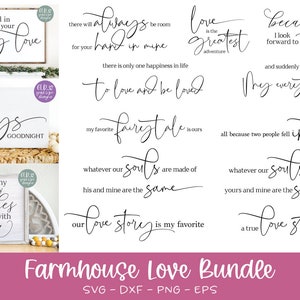 d in
your
y love
ys
GOODNIGHT
my
es
with
there will always be room
for your hand in mine
there is only one happiness in life
to love and be loved
my favorite fairytale is ours
whatever our souls are made of
his and mine are the same
our love story is my favorite
love
is the
greatest
adventure
becau
I look
forward to
and suddenly
my every
all because two people fell
whatever our souls
yours and mine are the s
a true love s
Farmhouse Love Bundle
SVG - DXF - PNG - EPS